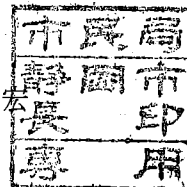 市民局
静岡市
長印
専用
宏